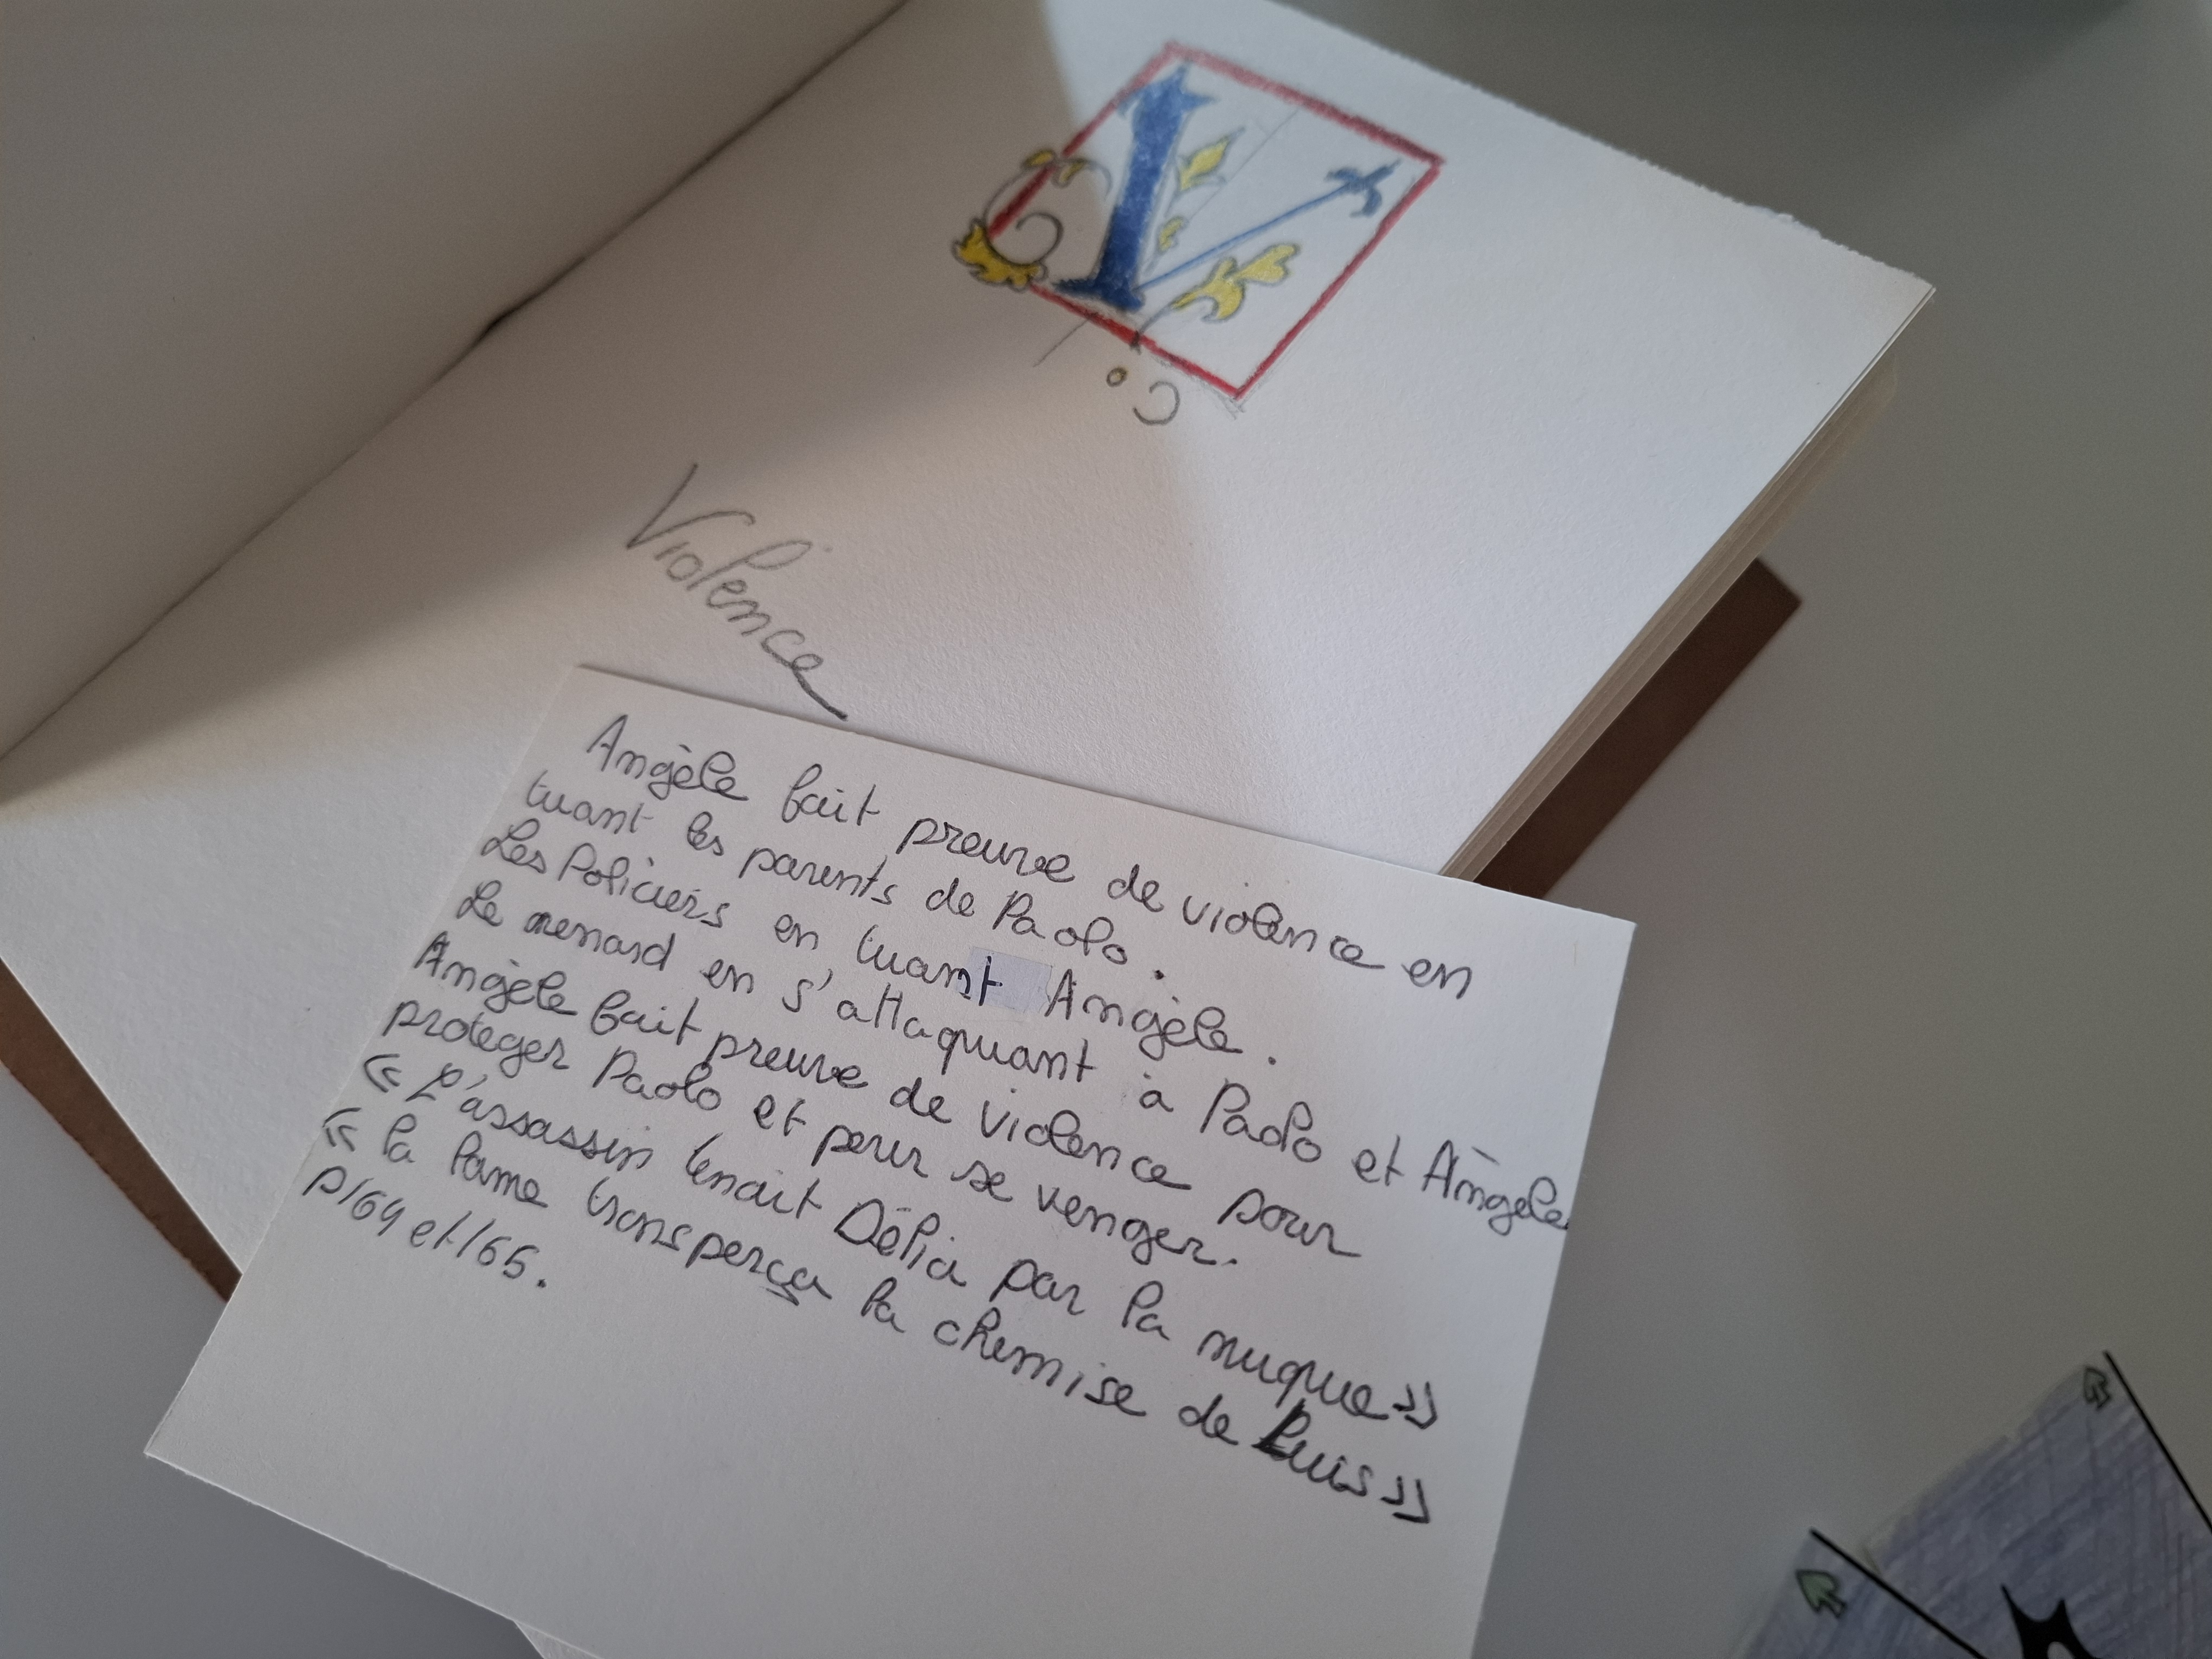 V
Violence
Angèle fait preuve de violence en
tuant les parents de Paolo.
Les Policiers en tuant Angèle.
Le renard en s'attaquant à Paolo et Angèle
Angèle fait preuve de violence pour
proteger Paolo et pour se venger.
« L'assassin tenait Délia par la nuque »
« la lame transperça la chemise de Luis »
p164 et 165.